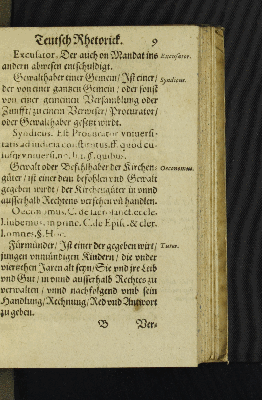 Teutsch Rhetorick. 9
Excusator. Der auch on Mandat ins Excusator.
andern abwesen entschuldigt.
Gewalthaber einer Gemein / Ist einer / Syndicus.
der von einer gantzen Gemein / oder sonst
von einer gemeinen Versamblung oder
Zunfft / zu einem Verweser / Procurator /
oder Gewalthaber gesetzt wirdt.
Syndicus. Est Procurator vniuersi-
tatis ad
Gewalt oder Befehlhaber der Kirchen- Oeconomus.
güter / ist einer dem befohlen vnd Gewalt
gegeben wirdt / der Kirchengüter in vnnd
ausserhalb Rechtens versehen vñ handlen.
Oeconomus. C. de sacrosanct. eccle.
l. iubemus. in princ. C. de Epis. & cler.
l. omnes, §. Hoc.
Fürmünder / Ist einer der gegeben wirt / Tutor.
jungen vnmündigen Kindern / die vnder
vierzehen Jaren alt seyn / Sie vnd jre Leib
vnd Gut / in vnnd ausserhalb Rechtes zu
verwalten / vnnd nachfolgend vmb sein
Handlung / Rechnung / Red vnd Antwort
zu geben.
B Ver-